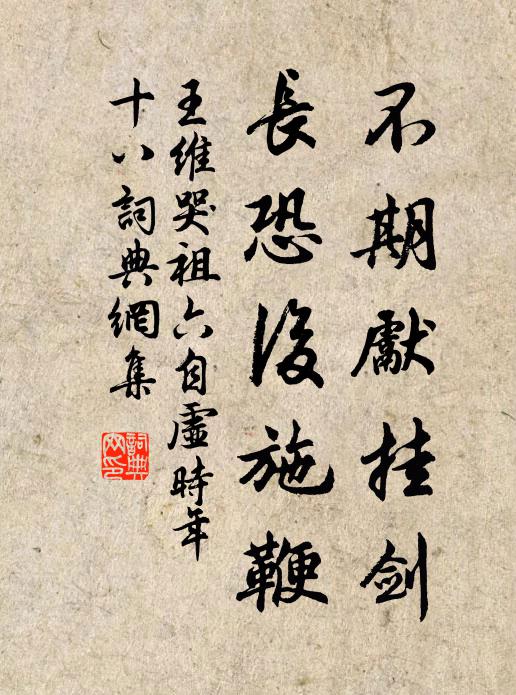 不期獻挂剑
長恐後施鞭
王維哭祖六自虛時年
十八詞典網集
詞典
网印